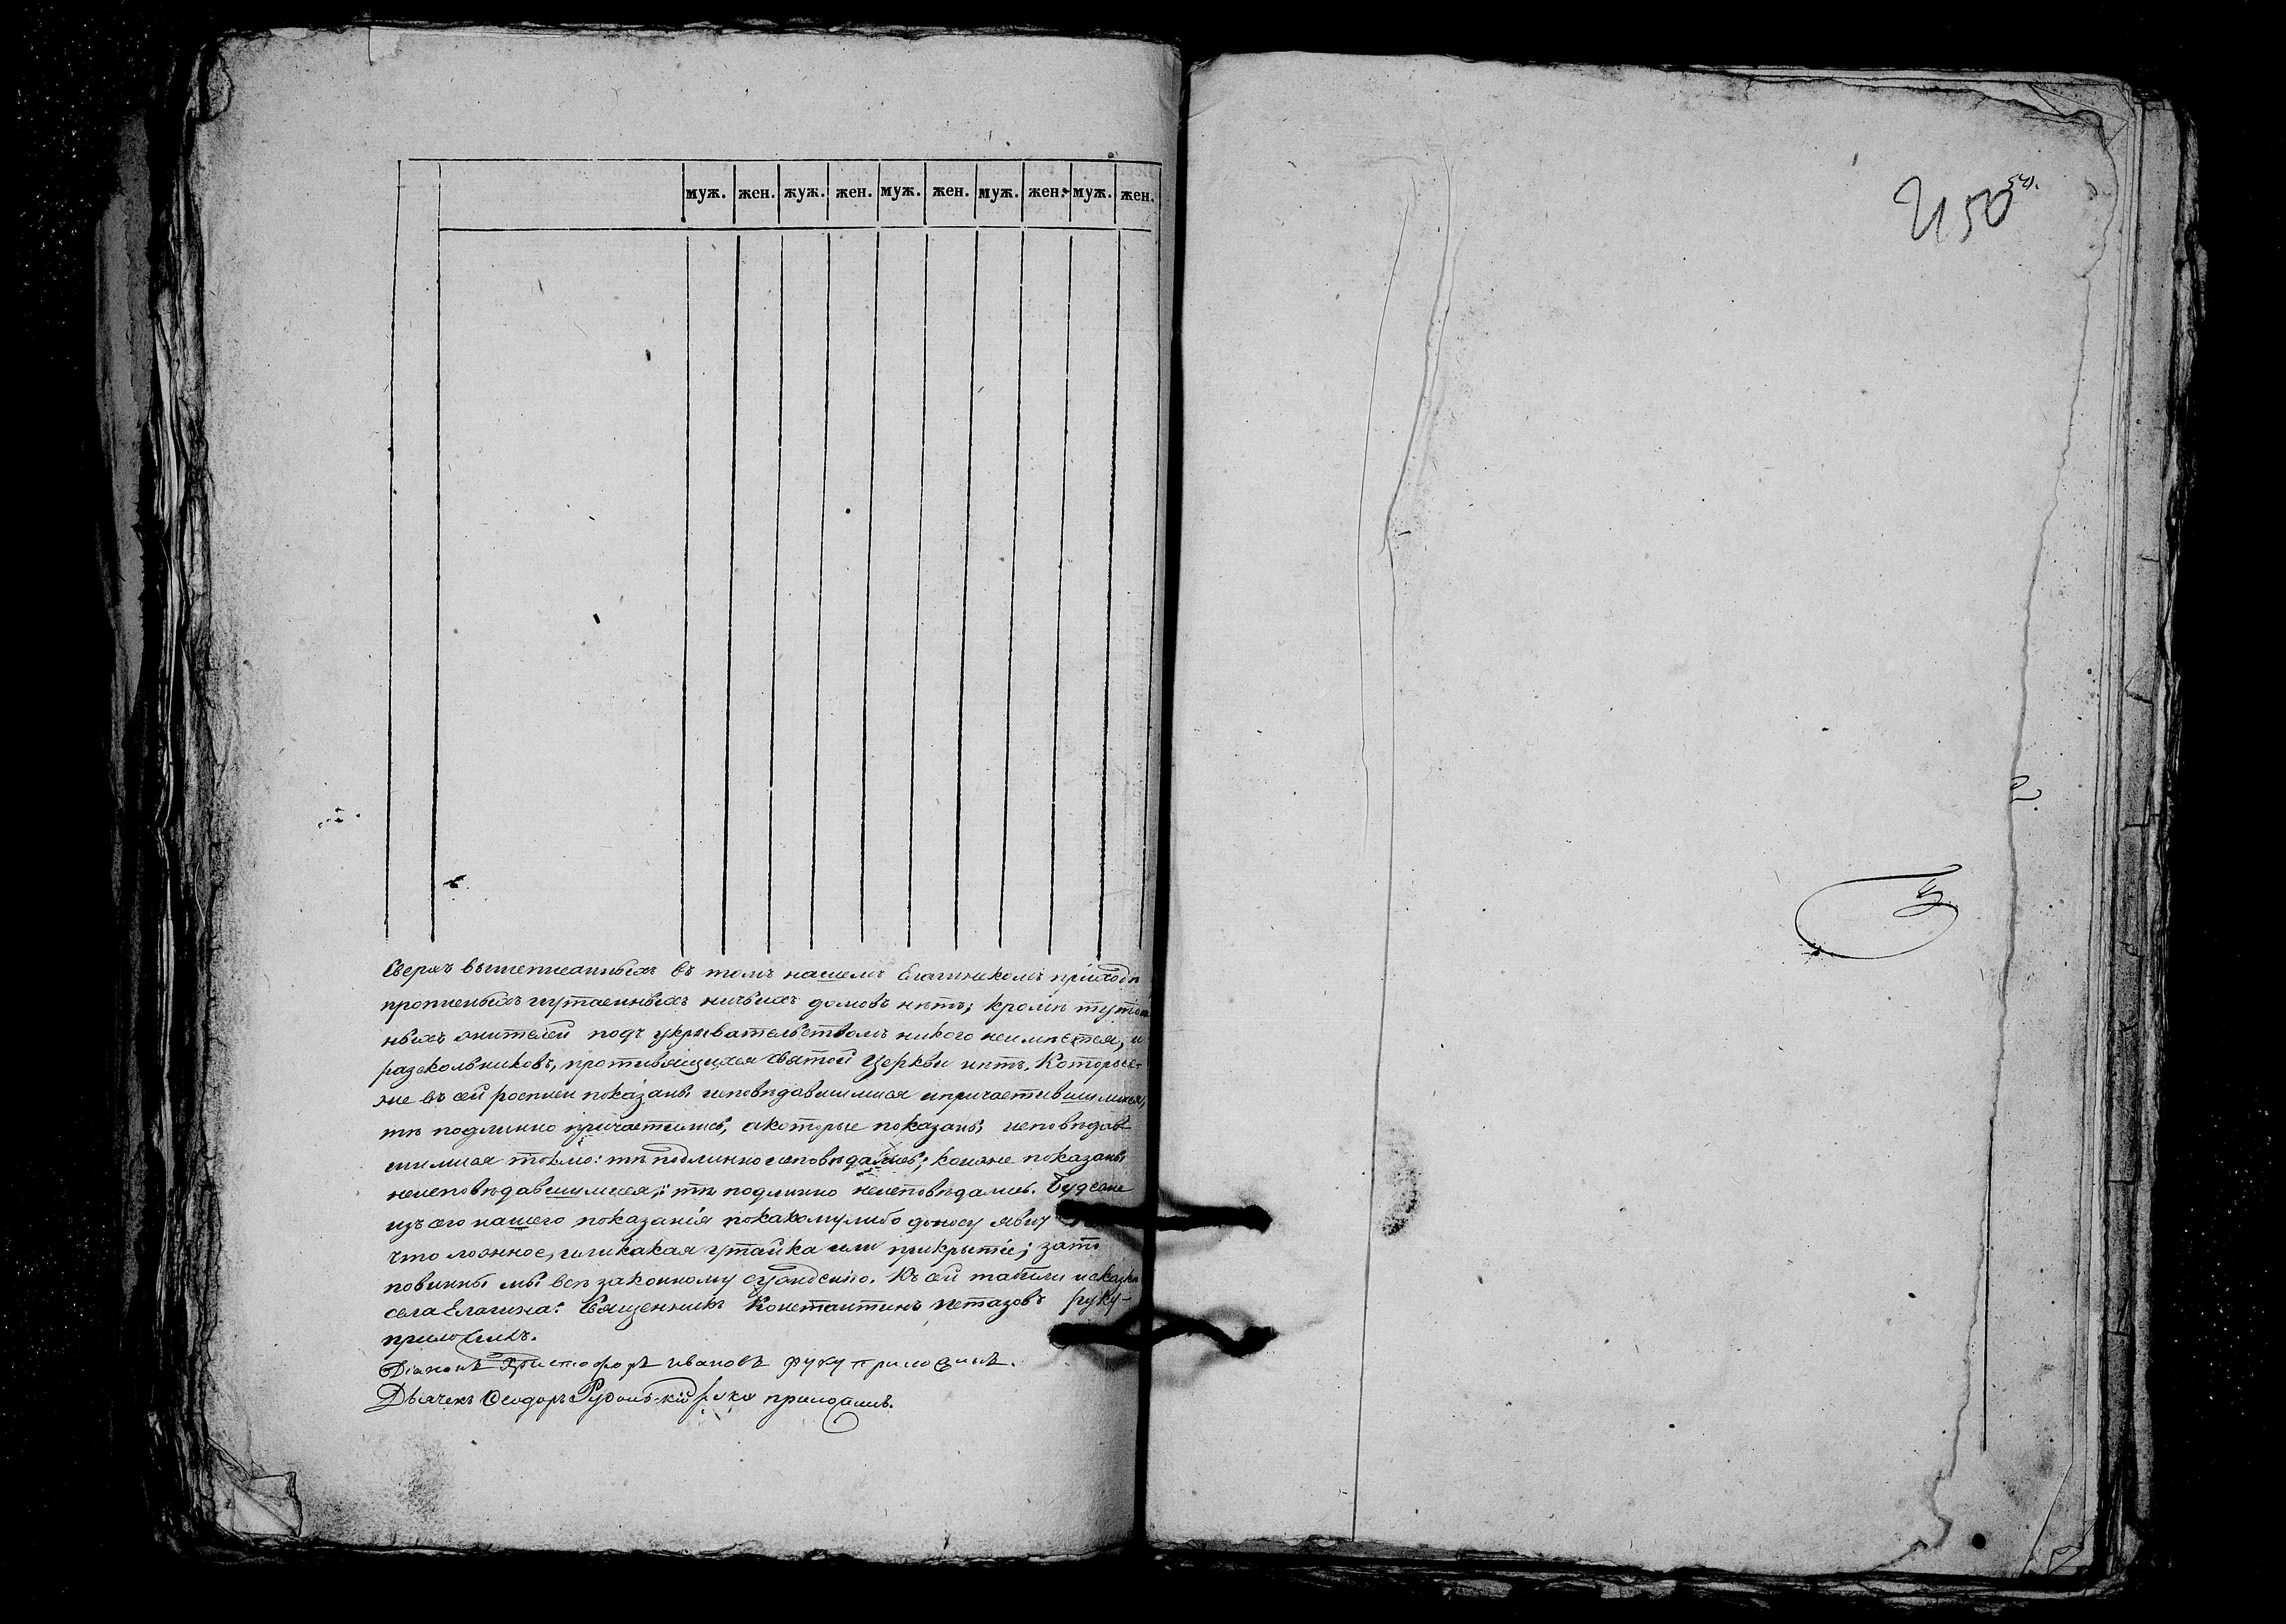 муж. жен. жуж. жен. муж. жен. муж. жен. муж. жен.
Сверхъ вышеписанныхъ въ томъ нашемъ Елагинскомъ приходѣ
прописныхъ иутаенныхъ ничьихъ домовъ нѣтъ; кромѣ тутош
ныхъ жителей подъ укрывательствомъ никого неимѣется, и
раскольниковъ, противящихся святой Церкви нѣтъ. Которые
же въ сей росписи показаны исповѣдавшимися ипричастившимися,
тѣ подлинно причастились, акоторые показаны исповѣдав
шимися токмо: тѣ подлинно исповѣдались; коиже показаны
неисповѣдавшимися; тѣ подлинно неисповѣдались. Будеже
изъ сего нашего показанія покакомулибо доносу явит
что ложное, иликакая утайка или прикрытіе; зато
повинны мы всѣ законному сужденію. Къ сей табели исказкѣ
села Елагина: Священникъ Константинъ руку-
приложилъ.
Діаконъ Христофоръ Ивановъ руку приложилъ.
Дьячекъ Ѳеодоръ руку приложилъ.
50